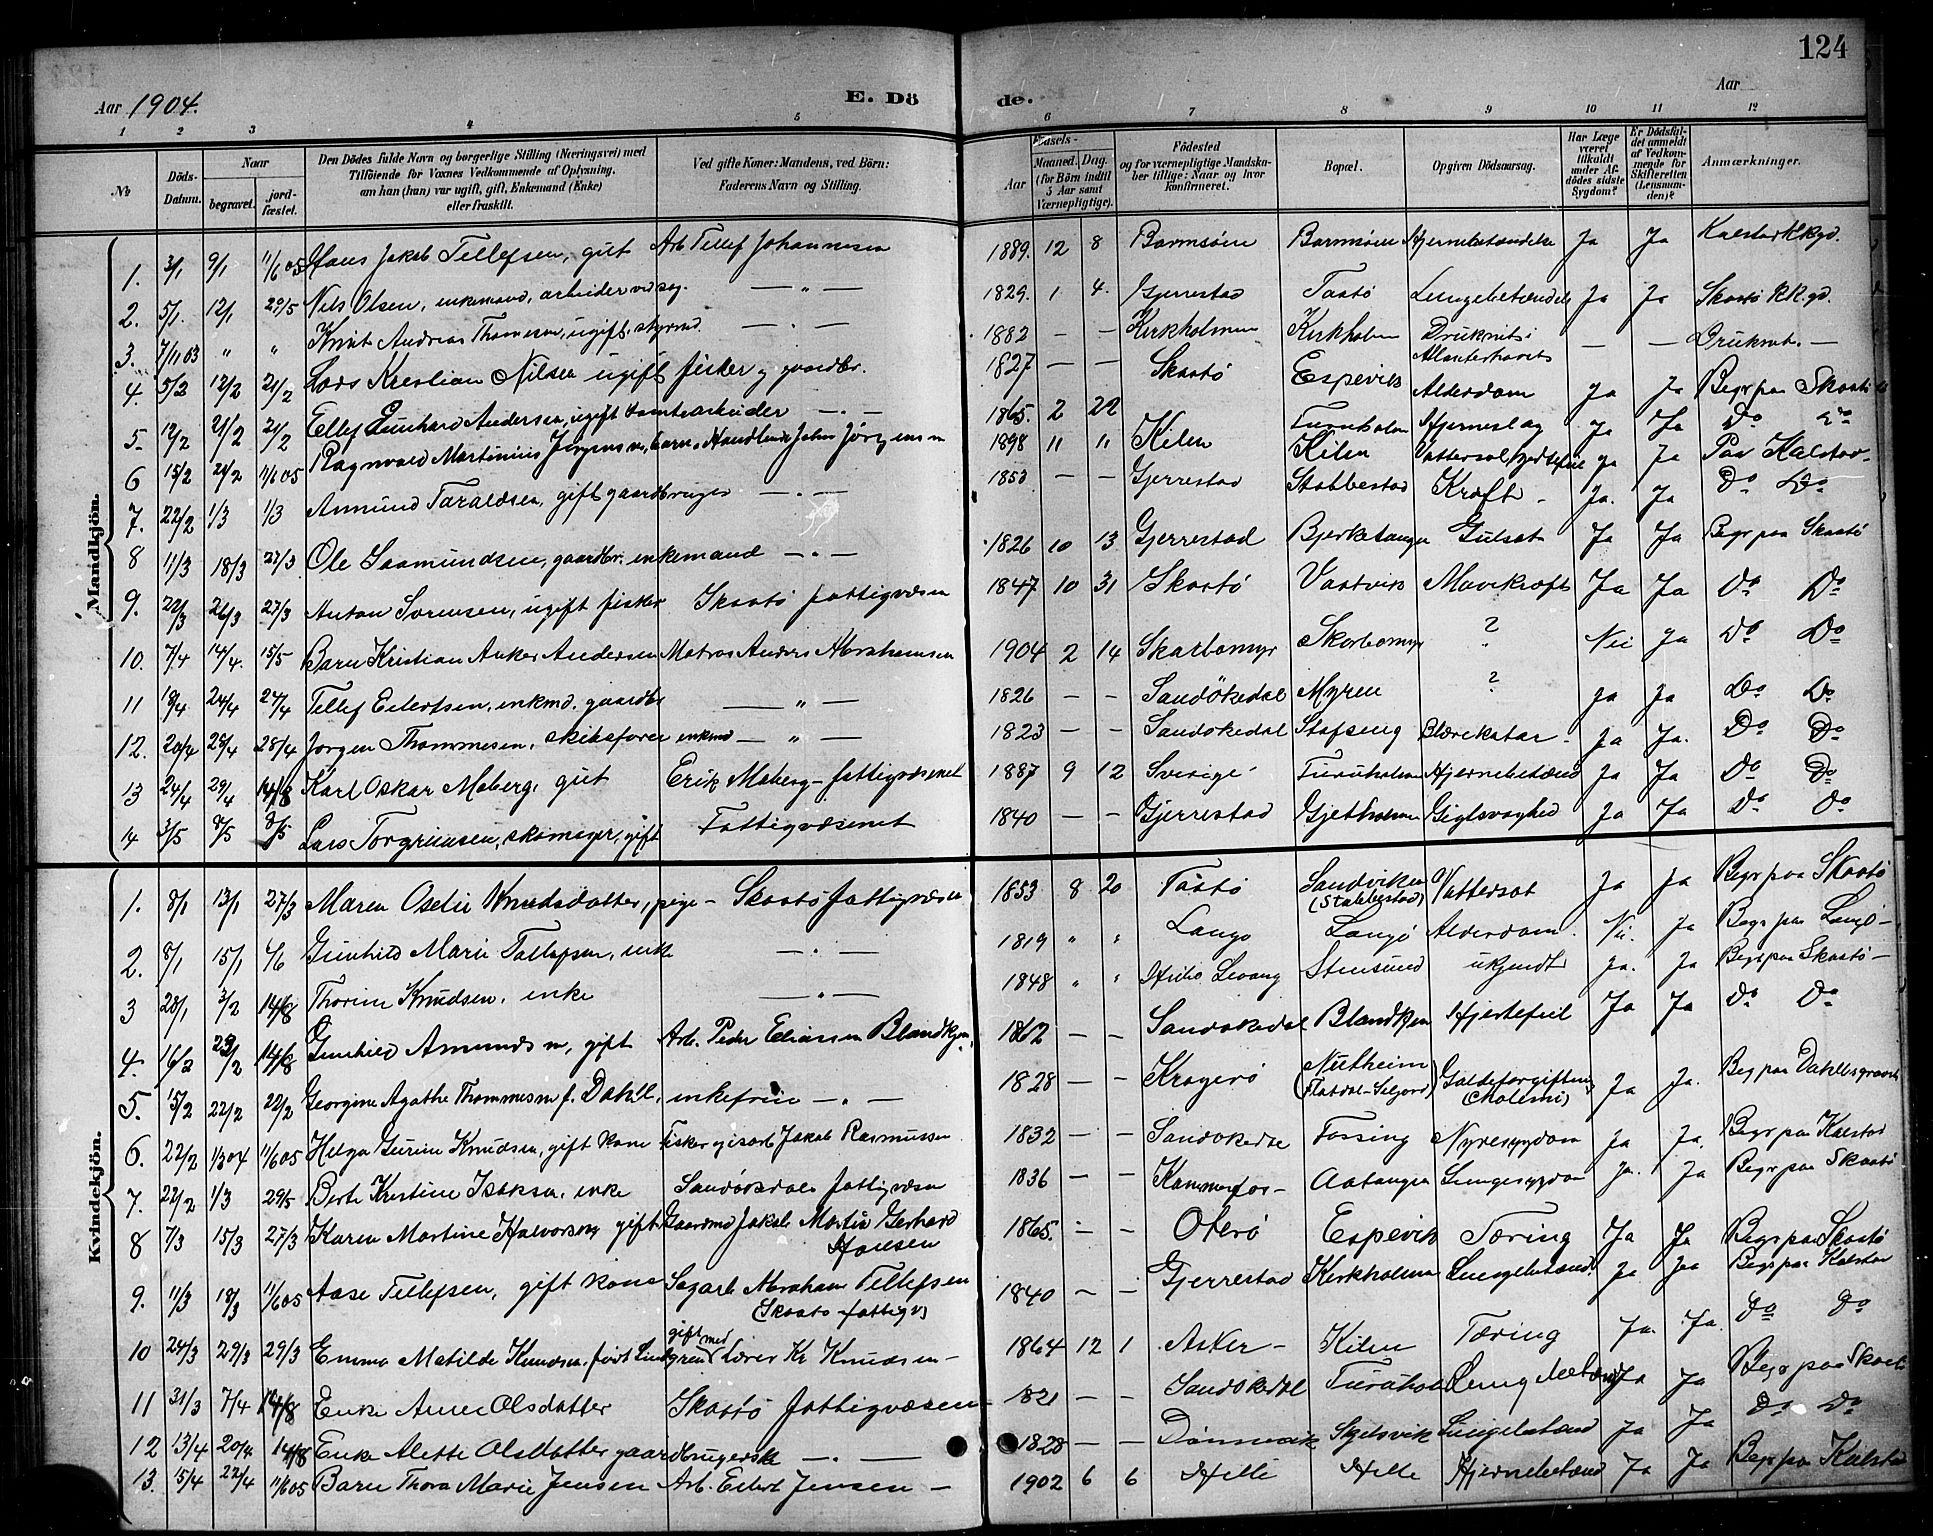 124
Aar 1904. E. Dö de. Aar
1 2 3 4 5 6 7 8 9 10 11 12
No Döds-Datum. Naar begravet. jord-fæstet. Den Dödes fulde Navn og borgerlige Stilling (Næringsvei) med Tilföiende for Voxnes Vedkommende af Oplysning, om han (hun) var ugift, gift, Enkemand (Enke) eller fraskilt. Ved gifte Koner: Mandens, ved Börn: Faderens Navn og Stilling. Aar Maaned. Dag. (for Börn indtil 5 Aar samt Værnepligtige). Födested og for værnepligtige Mandskaber tillige: Naar og hvor konfirmeret. Bopæl. Opgiven Dödsaarsag. Har Læge været tilkaldt under Afdödes sidste Sygdom? Er Dödsfaldet anmeldt af Vedkommende for Skifteretten (Lensmanden)? Anmærkninger.
Mandkjön.
1. 3/1 9/1 11/6 05 Hans Jakob Tellefsen, gut Arb Tellef Johannesen 1889. 12 8 Barmsöen Barmsöen Hjernebetændelse Ja Ja Kalstad Kkgd.
2. 5/1. 12/1 29/5 Nils Olsen, enkemand, arbeider ved sag. — " — 1829. 1 4. Gjerrestad Taatö Lungebetændels Ja Ja Skaatö KK.gd.
3. 7/11 03 " " Knut Andreas Thomesen, ugift, styrmd. — . — 1882 — — Kirkholmen Kirkholm Druknet i Atlanterhavet — — Druknet. —
4. 5/2 12/2 21/2 Lars Kristian Nilsen ugift fisker og gaardbr. 1827 — — Skaatö Espevik Alderdom Ja Ja Begr paa Skaatö
5. 12/2 21/2 21/2 Ellef Gunhard Andersen, ugift tomtearbeider — . — 1865. 2 22 Furuholm Hjerneslag Ja Ja Do Do
6 15/2 21/2 11/6 05 Ragnvald Martinius Jörgensen, barn, Handlende John Jörgensen 1898 11 11 Kilen Kilen Vattersot, hjertefeil Ja Ja Paa Kalstad
7. 22/2 1/3 1/3 Anmund Taraldsen, gift gaardbruger — . — 1853 — — Gjerrestad Stabbestad Kræft - Ja. Ja Do Do
8 11/3 18/3 27/3 Ole Saamundsen, gaardbr. enkemand — . — 1826 10 13 Gjerrestad Bjerketangen Gulsot Ja Ja Begr paa Skaatö
9. 22/3 26/3 27/3 Anton Sörensen, ugift fisker Skaatö fattigvæsen 1847 10 31 Skaatö Vaatvik Mavekræft Ja Ja Do Do
10. 7/4 14/4. 15/5 Barn Kristian Anker Andersen Matros Anders Abrahamsen 1904 2 14 Skarbomyr Skarbomyr ? Nei Ja Do Do
11 18/4 24/4 24/4 Tellef Eilertsen, enkmd. gaardbr — " — 1826 — — Sandökedal Myren ? Ja Ja Do Do
12. 20/4 28/4 28/4 Jörgen Thommesen, skibsförer enkmd — " — 1823 — — Sandökedal Stafseng Blærekatar - Ja Ja. Do Do
13 24/4 29/4 14/8 Karl Oskar Moberg, gut Erik Moberg - fattigvæsenet 1887 9 12 Sverige Furuholmen Hjernebetænd Ja Ja Do Do
14 3/5 8/5 8/5 Lars Torgrimsen, skomager, gift Fattigvæsenet 1840 — — Gjerrestad Gjetholmen Gigtsvaghed Ja Ja Do Do
Kvindekjön.
1. 8/1 13/1 27/3 Maren Oselie Knudsdatter, pige - Skaatö fattigvæsen 1853 8 20 Taatö Sandviken (Stabbestad) Vattersot Ja Ja Begr paa Skaatö
2. 8/1 15/1 4/6 Gunhild Marie Tollefsen, enke — . — 1819 " " Langö Langö Alderdom. Nei. Ja Begr paa Langö -
3 28/1 3/2 14/8 Thorine Knudsen, enke — " — 1848 " " Levang Stensund ukjendt Ja. Ja Begr paa Skaatö -
4. 16/2 23/2 14/8 Gunhild Amundsen, gift Arb. Peder Eliassen Blandkjen. 1862 — — Sandökedal Blandkjen Hjertefeil Ja Ja Do Do
5. 15/2 22/2 22/2 Georgine Agathe Thommesen f. Dahll, enkefrue — . — 1828 — — Kragerö Nutheim (Flatdal-Seljord) Galdeforgiftning (Cholemi) Ja Ja. Beg paa Dahllsgravst
6. 22/2 1/3 04 11/6 05 Helga Gurine Knudsen, gift kone Fisker Jakob Rasmussen 1832 — — Sandökedal Fossing Nyresygdom Ja Ja. Begr paa Kalstad
7. 22/2 1/3 29/5 Berte Kristine Isaksen, enke Sandökedals fattigvæsen 1836 — — Kammerfos - Aatangen Lungesygdom Ja. Ja Begr paa Skaatö
8 7/3 15/3 27/3 Karen Martine Halvorsen gift Gaardmd Jakob Martin Gerhard Hansen 1865. — — Oterö Espevik Tæring Ja Ja Begr paa Skaatö
9. 11/3 18/3 11/6 05 Aase Tellefsen, gift kone Sagarb Abraham Tellefsen (Skaatö fattigv) 1840 — — Gjerrestad Kirkholmen Lungebetænd. Ja Ja Begr paa Kalstad
10 24/3 29/3 29/3 Emma Matilde Knudsen, född Lindgren gift med Lærer Kr Knudsen - 1864 12 1 Asker - Kilen Tæring Ja. Ja. Do Do
11 31/3 7/4 14/8 Enke Anne Olsdatter Skaatö fattigvæsen 1821 — — Sandökedal Furuhol Lungebetænd Ja Ja Begr paa Skaatö
12 13/4 20/4 14/8 Enke Alette Olsdatter gaardbrugerske — . — 1828 — — Danmark Skjelsvik Lungebetænd Ja Ja Do Do
13. 15/4 22/4 11/6 05 Barn Thora Marie Jensen Arb. Eilert Jensen - 1902 6 6 Helle Helle Hjernebetænd Ja Ja Begr paa Kalstad